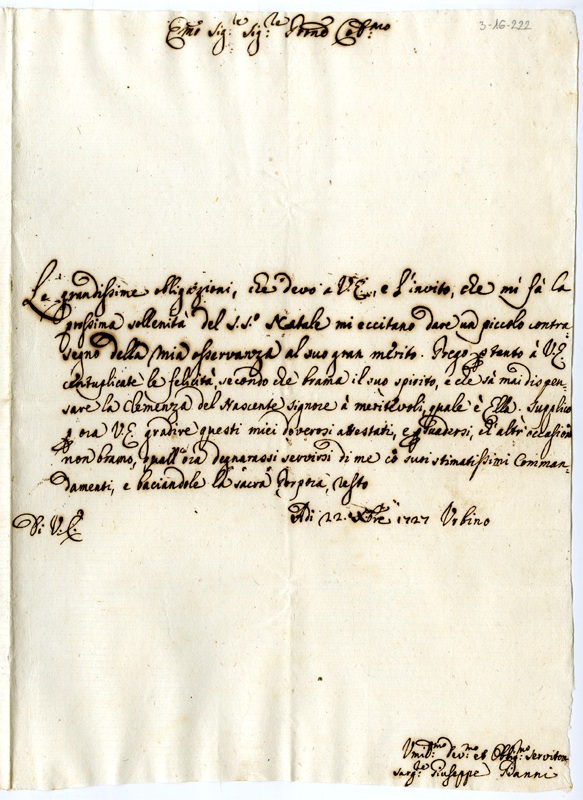 3-16-222
Em̃o Sig:re Sig:re Prõne Col:mo
Le grandissime obligazioni, che devo a V.E., e l'invito, che mi fà la
prossima sollenità del S.S.o Natale mi eccitano dare un piccolo contra-
segno della mia osservanza al suo gran merito. Prego ptanto à V.E.
centuplicate le felicità, secondo che brama il suo spirito, e che sà mai dispen-
sare la Clemenza del Nascente Signore à meritevoli, quale è Ella. Supplico
p ora V.E. gradire questi miei doverosi attestati, e psuadersi, ch'altr'occasione
non bramo, quall'ora degnarassi servirsi di me co suoi stimatissimi Comman-
damenti, e baciandole la sacra Porpora, resto
Adi 22. Xbre 1727 Urbino
Di V.E.
Umil.mo Dev:mo et Obblig:mo Servitore
Sarg:te Giuseppe Nanni